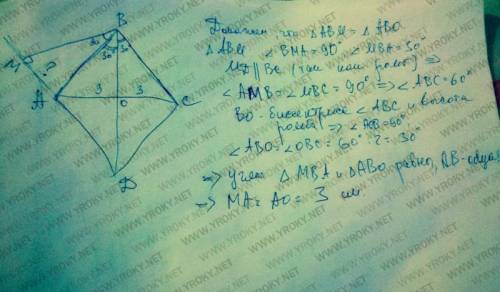 B
30° 30°
M ?
A 3 O 3 C
D
Докажем, что △ABM = △ABO
△ABM ∠BMA=90° ∠MBA=30°
MD || BC (так как ромб) ⇒
∠AMB=∠MBC=90° ⇒ ∠ABC=60°
BO - биссектриса ∠ABC и высота
ромба ⇒
∠ABO=∠OBC=60°:2=30°
⇒ △MBA и △ABO равны, AB-общая
⇒ MA=AO=3 см.
WWW.YROKY.NET